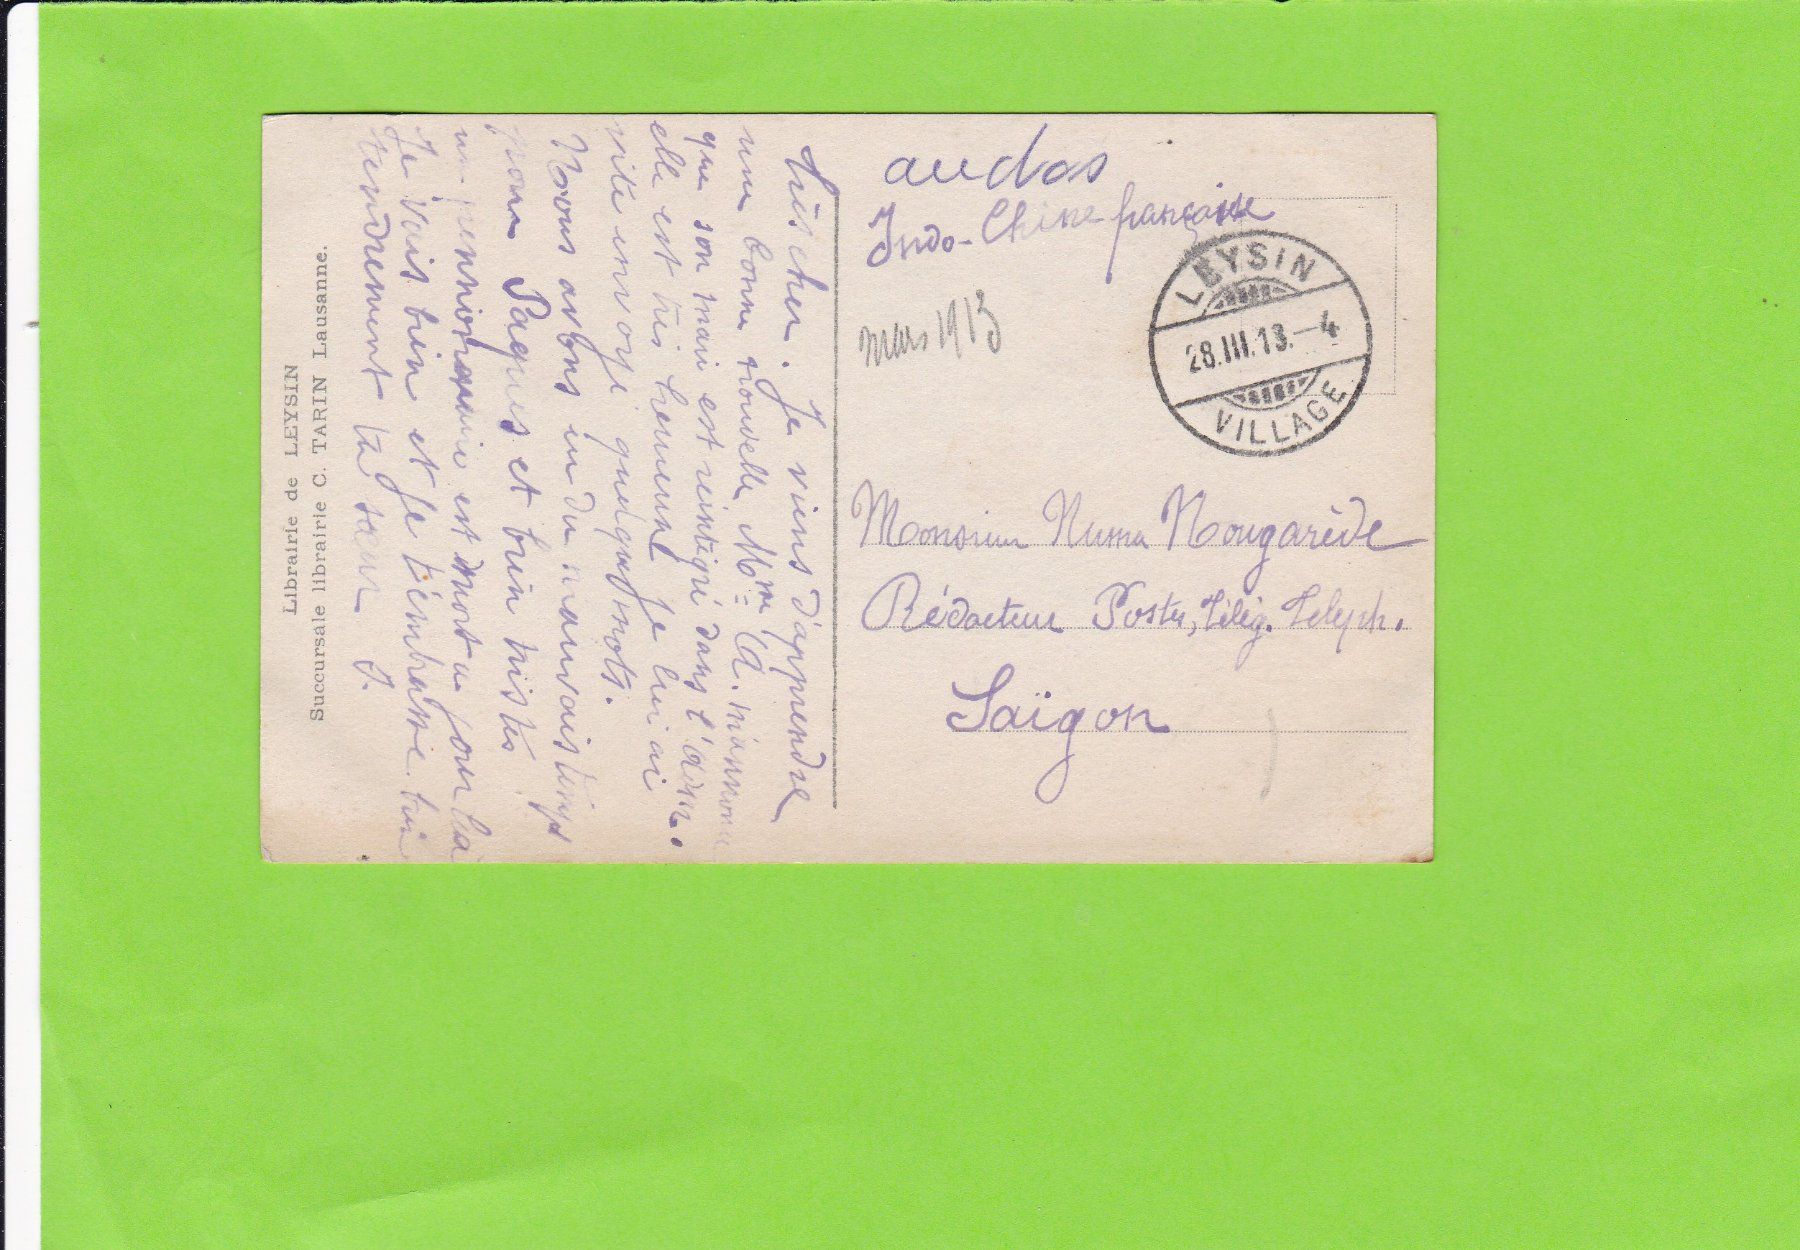 au dos
Indo-Chine française
mars 1913
LEYSIN
28.III.13.-4
VILLAGE
Monsieur Numa Nougarède
Rédacteur Postes, Télég. Téléph.
Saïgon
Très cher. Je viens d'apprendre
une bonne nouvelle Mme A. m'annonce
que son mari est réintégré dans l'adm.
elle est très heureuse je lui ai
vite envoyé quelques mots.
Nous avons eu du mauvais temps
pour Paques et bien tristes
un pensionnaire est mort ce jour là
Je vais bien et je t'embrasse bien
tendrement ta sœur J.
Librairie de LEYSIN
Succursale librairie C. TARIN Lausanne.